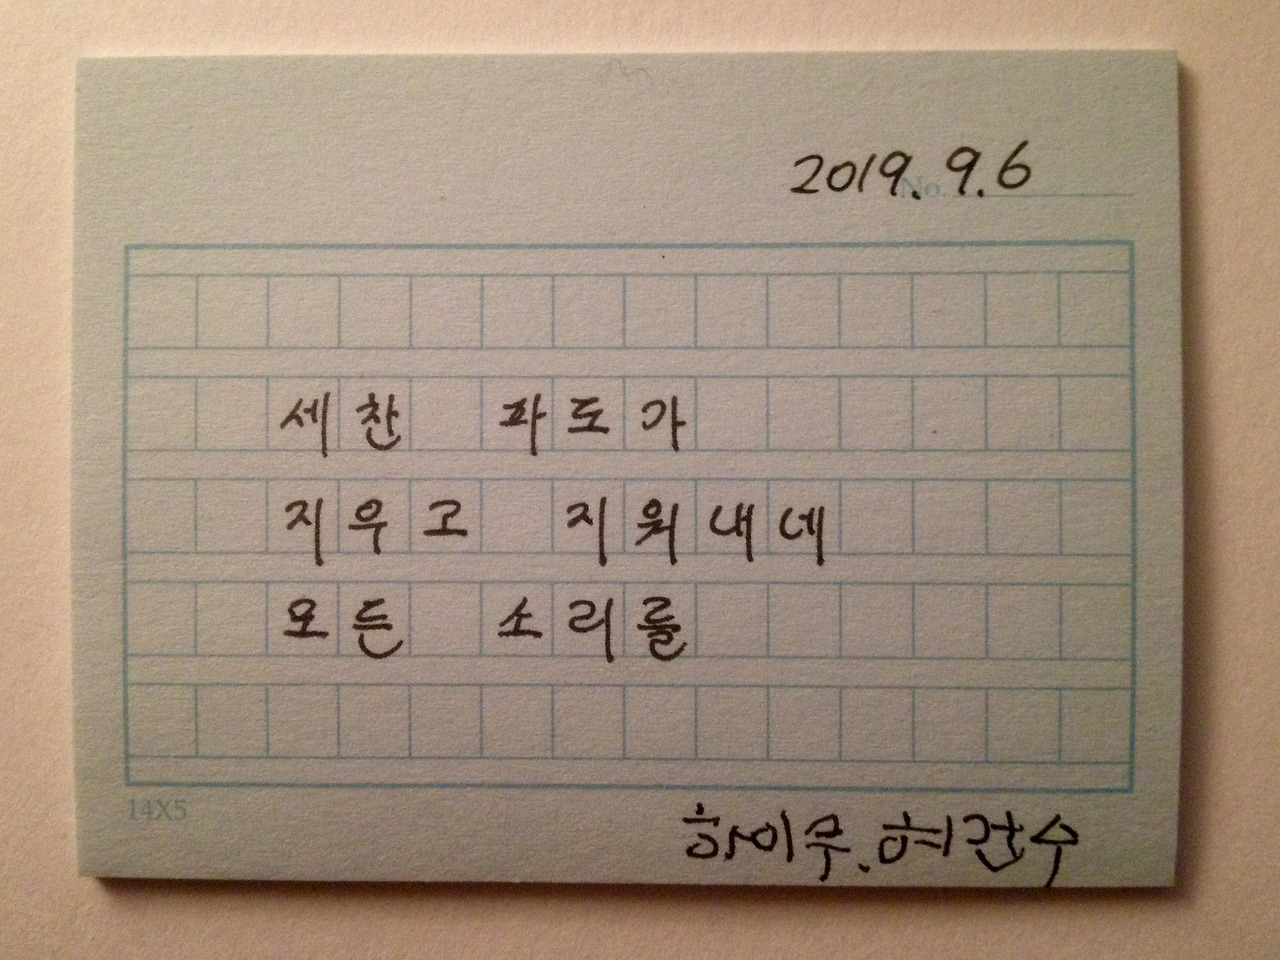 2019. 9. 6
No.
세찬 파도가
지우고 지워내네
모든 소리를
14X5
하이쿠. 허건수